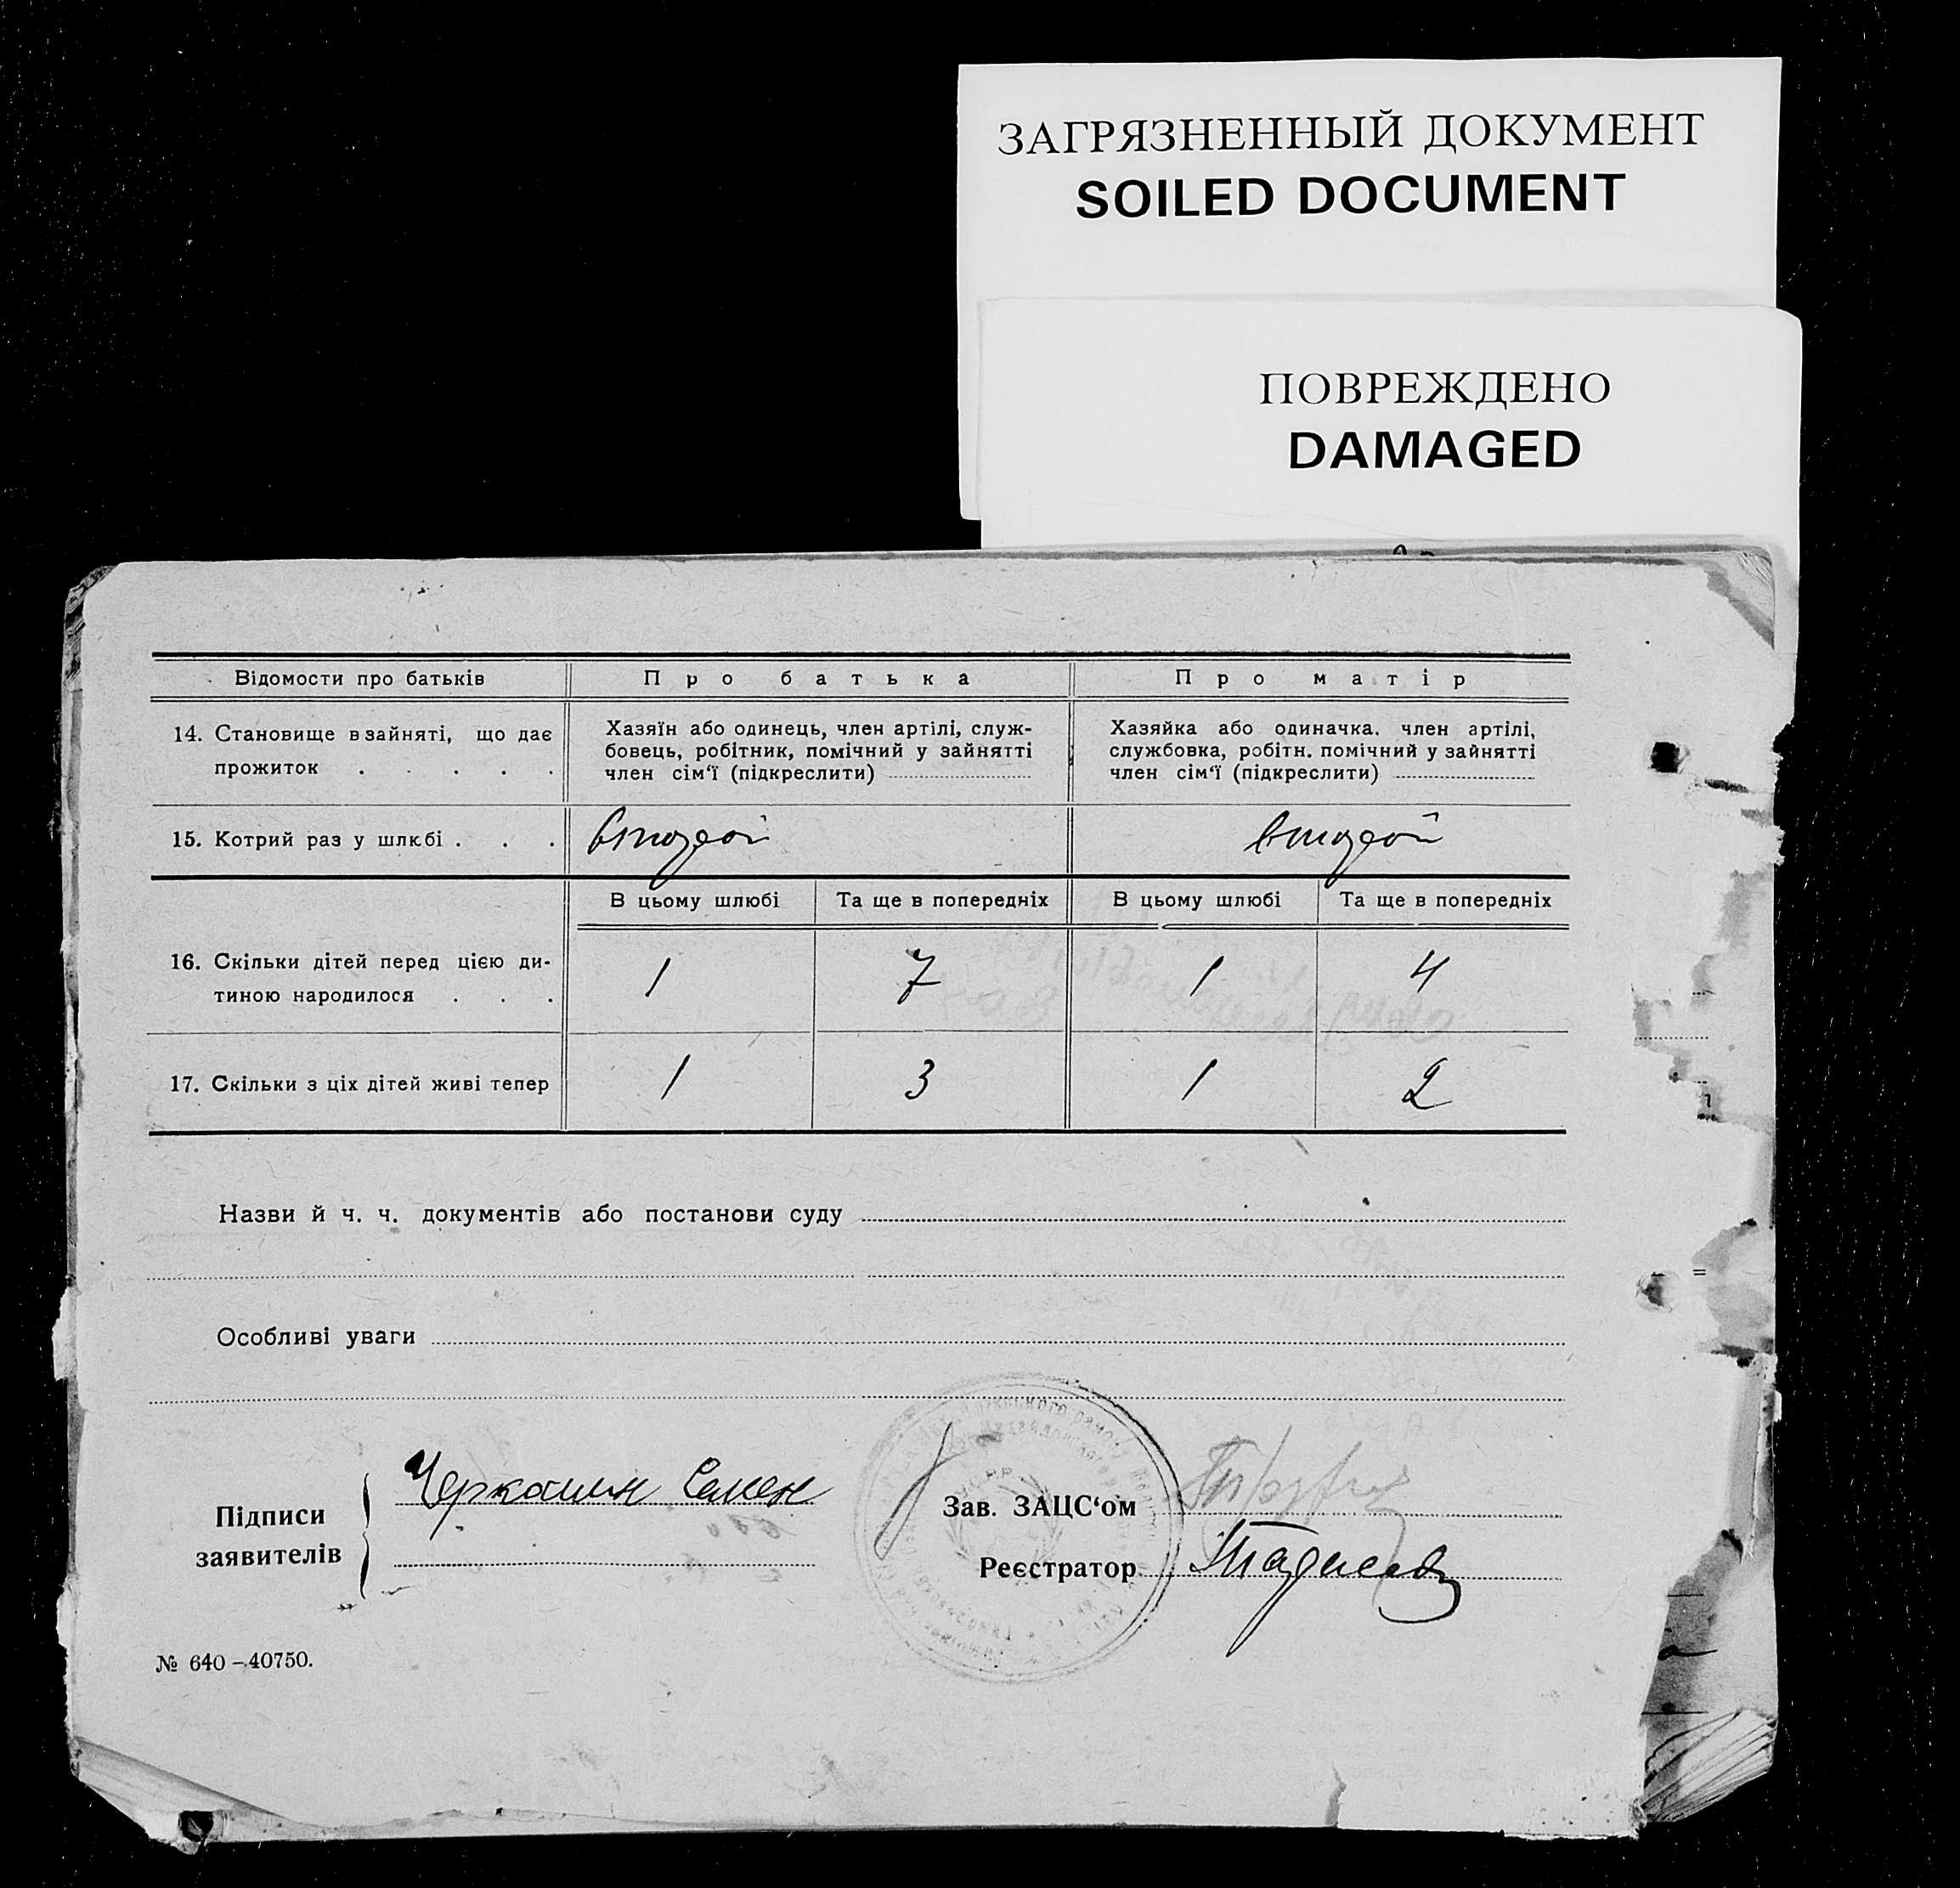 ЗАГРЯЗНЕННЫЙ ДОКУМЕНТ
SOILED DOCUMENT
ПОВРЕЖДЕНО
DAMAGED
Відомости про батьків Про батька Про матір
14. Становище в зайняті, що дає прожиток . . . . .
Хазяїн або одинець, член артілі, служ-
бовець, робітник, помічний у зайнятті
член сім‘ї (підкреслити)
Хазяйка або одиначка, член артілі,
службовка, робітн. помічний у зайнятті
член сім‘ї (підкреслити)
15. Котрий раз у шлюбі . . . второй второй
В цьому шлюбі Та ще в попередніх В цьому шлюбі Та ще в попередніх
16. Скільки дітей перед цією ди-
тиною народилося . . . 1 7 1 4
17. Скільки з ціх дітей живі тепер 1 3 1 2
Назви й ч. ч. документів або постанови суду
Особливі уваги
Підписи
заявителів
Черкашин Семен
Зав. ЗАЦС‘ом
Реєстратор
№ 640–40750.